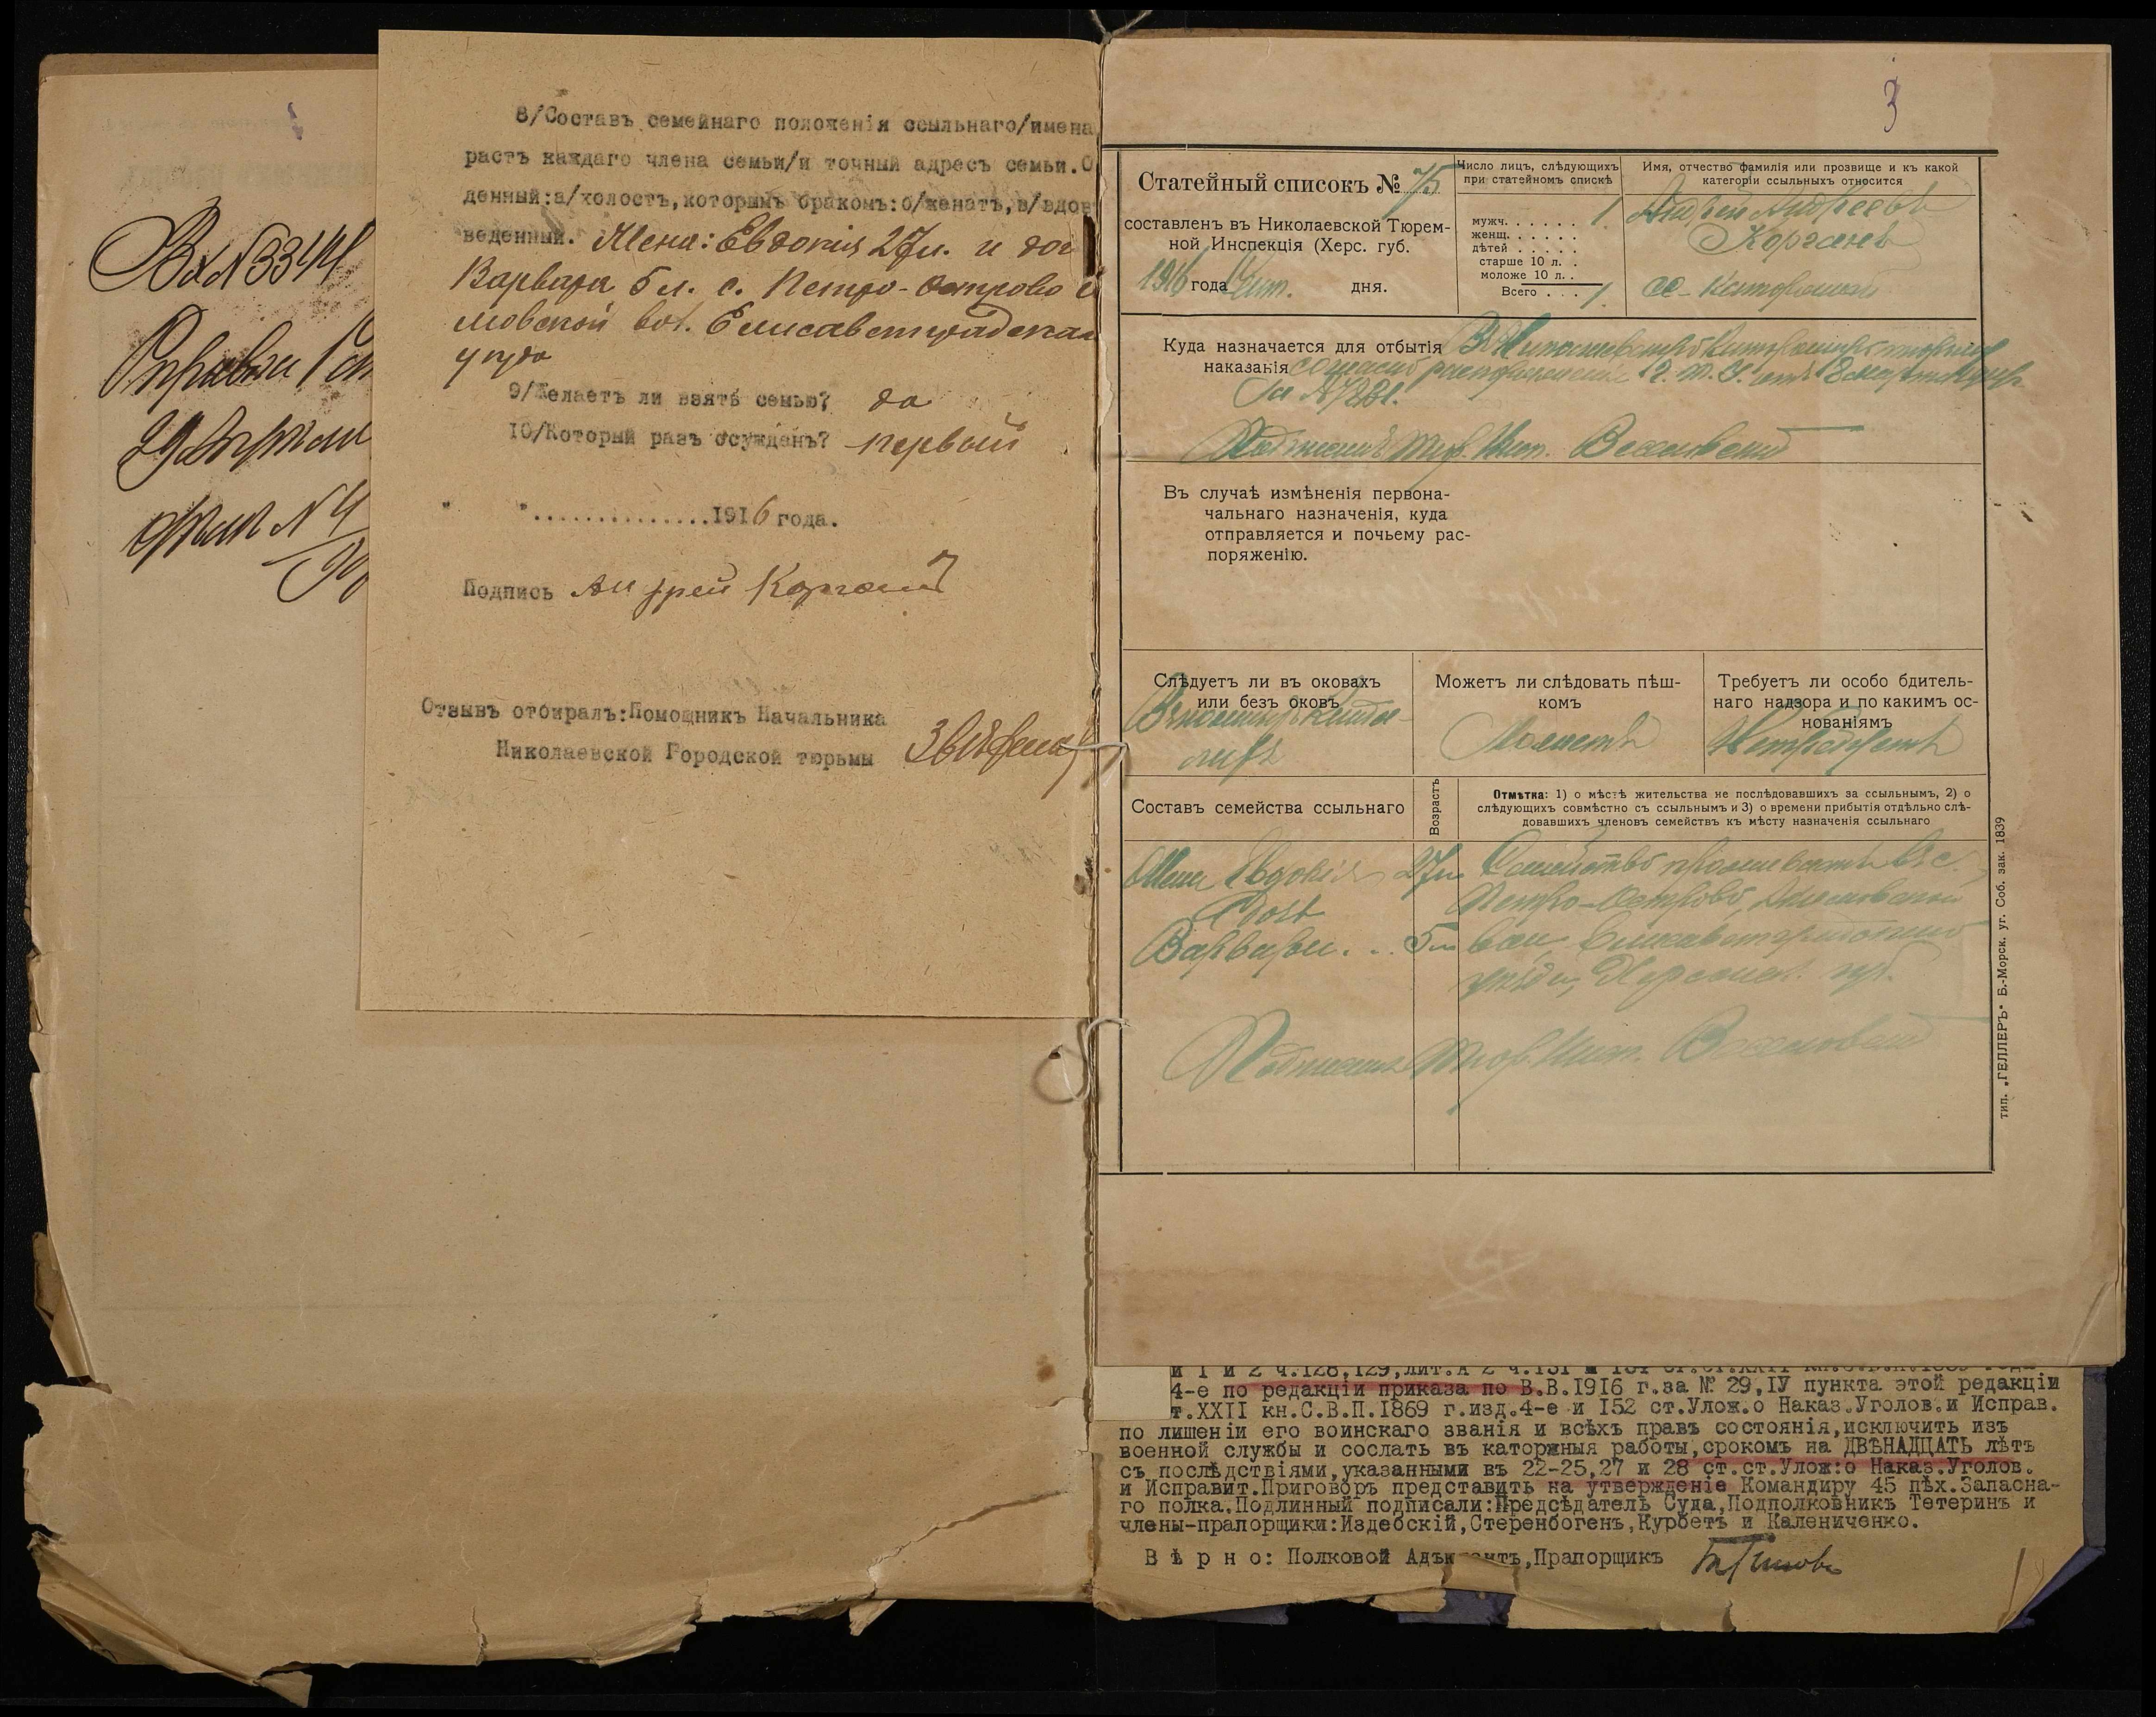 Вх № 3344
29 Апрѣля
8/Составъ семейнаго положенія ссыльнаго/имена
растъ каждаго члена семьи/и точный адресъ семьи.О
денный:а/холостъ,которымъ бракомъ:б/женатъ,в/вдов
веденный. Жена: Евдокия 27 л. и доч
Варвара 5 л. с. Петро-Острово
мовской вол. Елисаветградскаго
уезда
9/Желаетъ ли взять семью? да
10/Который разъ осужденъ? первый
" "...............1916 года.
Подпись Андрей Корган
Отзывъ отбиралъ:Помощникъ Начальника
Николаевской Городской тюрьмы
3
Статейный списокъ № 75
составленъ въ Николаевской Тюрем-
ной Инспекція (Херс. губ.
1916 года дня.
Число лицъ, слѣдующихъ
при статейномъ спискѣ
мужч. . . . . . . 1.
женщ. . . . . . .
дѣтей . . . . .
старше 10 л. . .
моложе 10 л. . .
Всего . . . 1.
Имя, отчество фамилія или прозвище и къ какой
категоріи ссыльныхъ относится
Андрей Андреевъ
Корганъ
Куда назначается для отбытія
наказанія согласно распоряженія Г. Т. У. отъ 18
за №
Подписалъ Тюр. Инсп.
Въ случаѣ измѣненія первона-
чальнаго назначенія, куда
отправляется и почьему рас-
поряженію.
Слѣдуетъ ли въ оковахъ
или безъ оковъ
Въ ножныхъ канда-
лахъ
Можетъ ли слѣдовать пѣш-
комъ
Можетъ
Требуетъ ли особо бдитель-
наго надзора и по какимъ ос-
нованіямъ
Не требуетъ
Составъ семейства ссыльнаго
Возрастъ
Отмѣтка: 1) о мѣстѣ жительства не послѣдовавшихъ за ссыльнымъ, 2) о
слѣдующихъ совмѣстно съ ссыльнымъ и 3) о времени прибытія отдѣльно слѣ-
довавшихъ членовъ семействъ къ мѣсту назначенія ссыльнаго
Жена Евдокія 27 л. Семейство проживаетъ въ с.
Дочь Петро-Острово,
Варвара. .. 5 л. вол. Елисаветградскаго
уѣзда, Херсонск. губ.
Подписалъ Тюр. Инсп.
тип. „ГЕЛЛЕРЪ“ Б.-Морск. уг. Соб. зак. 1839
и 1 и 2 ч.128,129,лит.А 2 ч.131
4-е по редакціи приказа по В.В.1916 г.за № 29,IУ пункта этой редакціи
т.XXII кн.С.В.П.1869 г.изд.4-е и 152 ст.Улож.о Наказ.Уголов.и Исправ.
по лишеніи его воинскаго званія и всѣхъ правъ состоянія,исключить изъ
военной службы и сослать въ каторжныя работы,срокомъ на ДВѢНАДЦАТЬ лѣтъ
съ послѣдствіями,указанными въ 22-25,27 и 28 ст.ст.Улож:о Наказ.Уголов.
и Исправит.Приговоръ представить на утвержденіе Командиру 45 пѣх.Запасна-
го полка.Подлинный подписали:Предсѣдатель Суда,Подполковникъ Тетеринъ и
члены-прапорщики:Издебскій,Стеренбогенъ,Курбетъ и Калениченко.
В ѣ р н о: Полковой Адъютантъ,Прапорщикъ